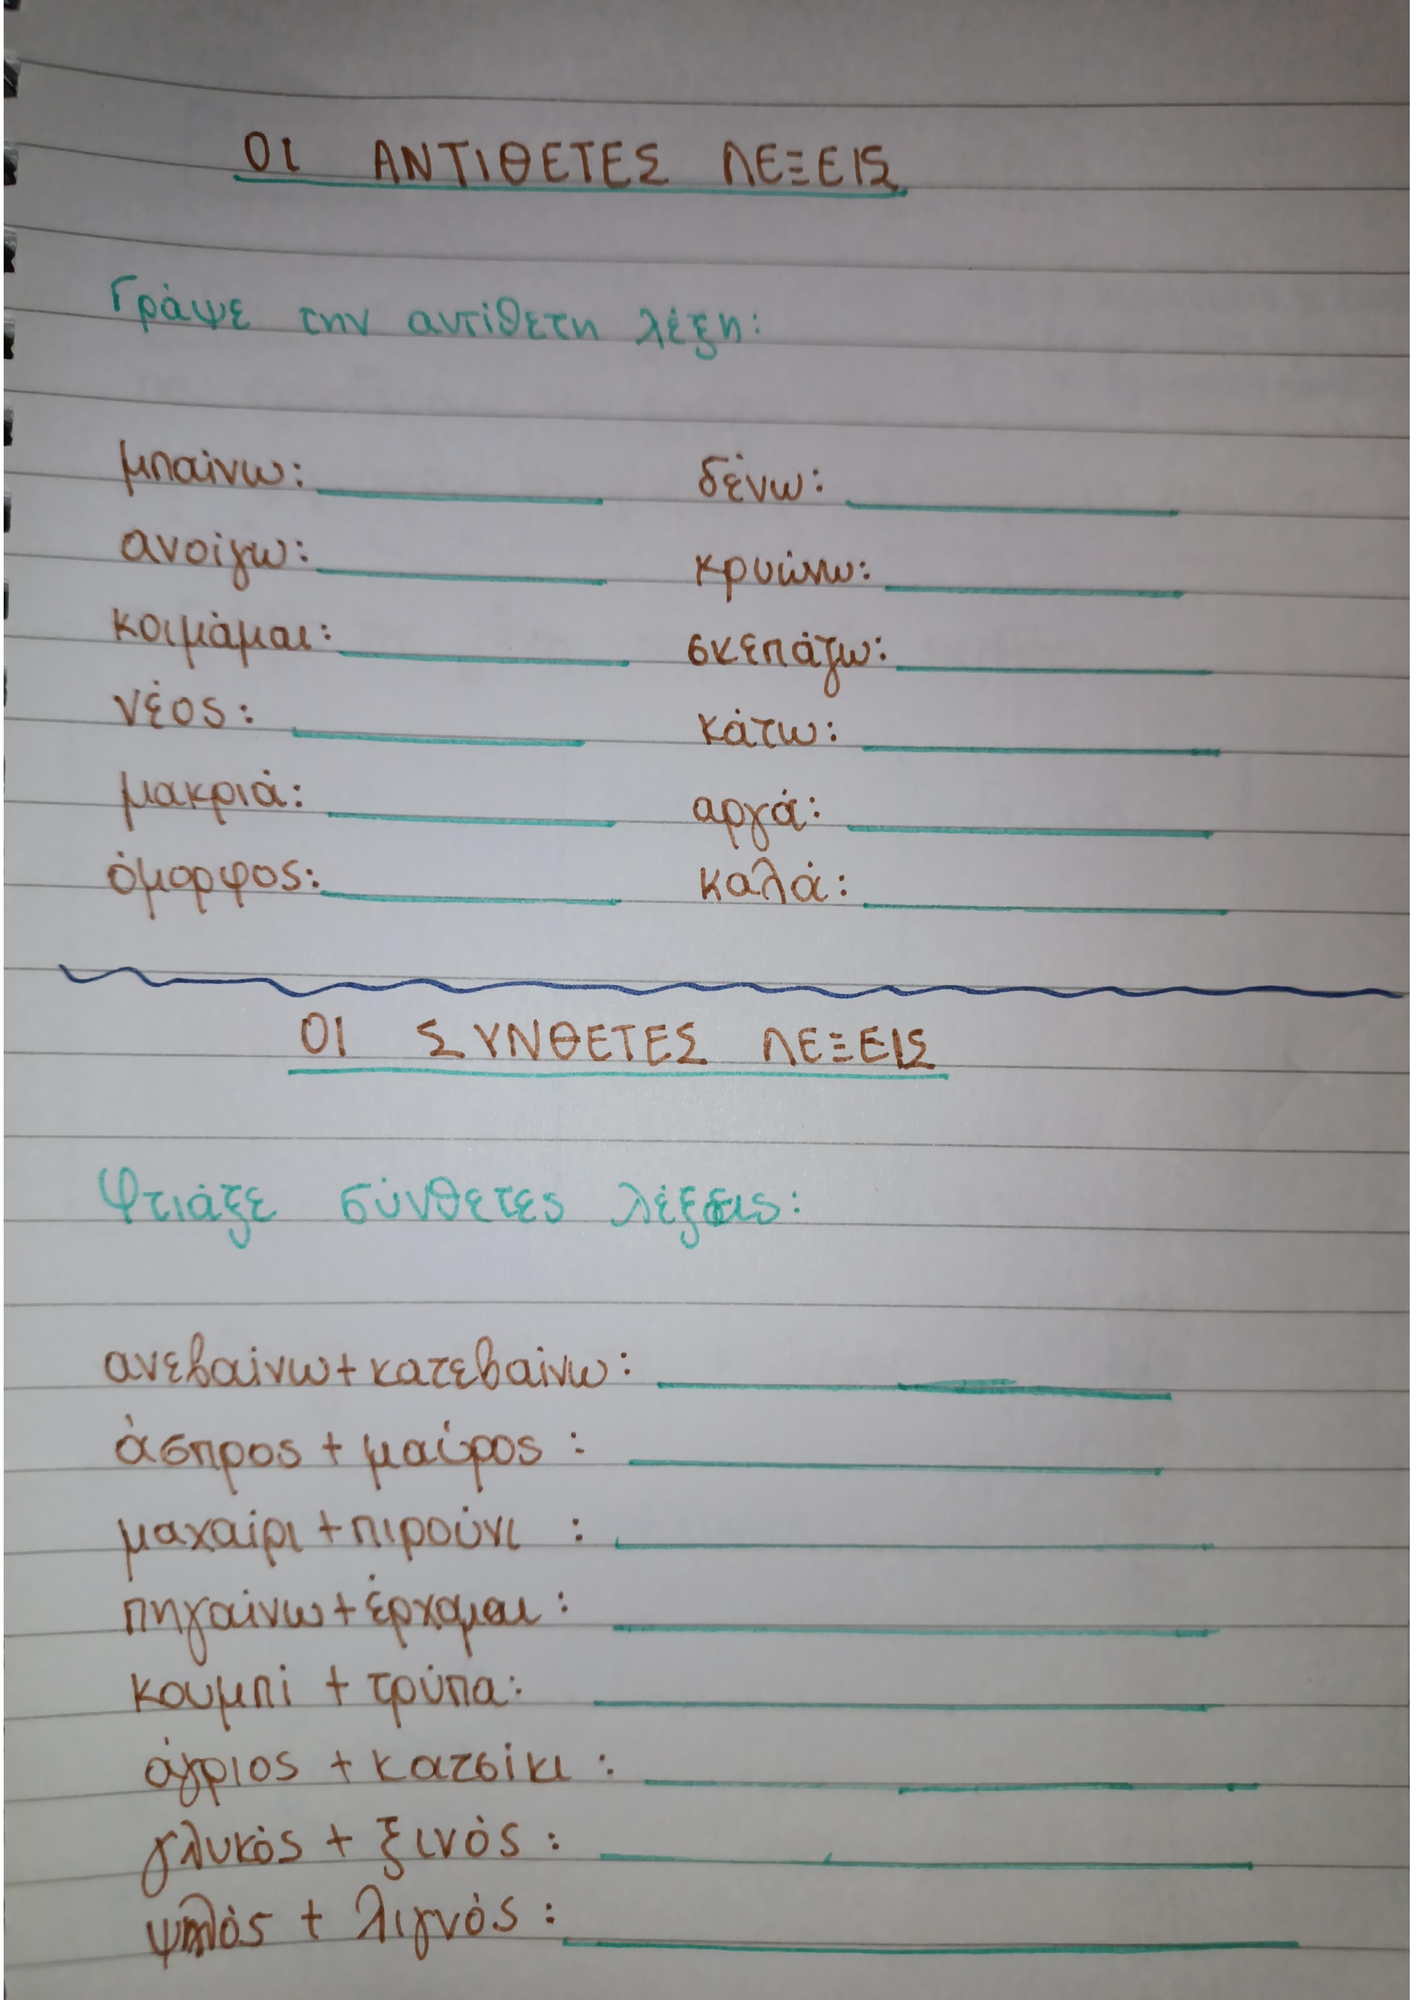 ΟΙ ΑΝΤΙΘΕΤΕΣ ΛΕΞΕΙΣ
Γράψε την αντίθετη λέξη:
μπαίνω: δένω:
ανοίγω: κρυώνω:
κοιμάμαι: σκεπάζω:
νέος: κάτω:
μακριά: αργά:
όμορφος: καλά:
ΟΙ ΣΥΝΘΕΤΕΣ ΛΕΞΕΙΣ
Φτιάξε σύνθετες λέξεις:
ανεβαίνω+κατεβαίνω:
άσπρος + μαύρος :
μαχαίρι +πιρούνι :
πηγαίνω+έρχομαι :
κουμπί + τρύπα:
άγριος + κατσίκι :
γλυκός + ξινός :
ψηλός + λιγνός :